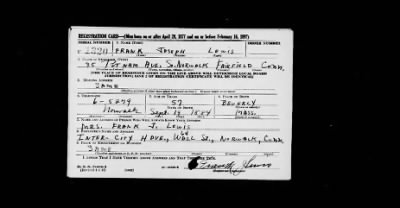 REGISTRATION CARD—(Men born on or after April 28, 1877 and on or before February 16, 1897)
SERIAL NUMBER 1. NAME (Print) ORDER NUMBER
FRANK JOSEPH LEWIS
2. PLACE OF RESIDENCE (Print)
35 AVE. S. NORWALK FAIRFIELD CONN.
[THE PLACE OF RESIDENCE GIVEN ON THE LINE ABOVE WILL DETERMINE LOCAL BOARD
JURISDICTION; LINE 2 OF REGISTRATION CERTIFICATE WILL BE IDENTICAL]
3. MAILING ADDRESS
SAME
4. TELEPHONE 5. AGE IN YEARS 6. PLACE OF BIRTH
6-5829 57 BEVERLY
DATE OF BIRTH
Norwalk Sept. MASS.
7. NAME AND ADDRESS OF PERSON WHO WILL ALWAYS KNOW YOUR ADDRESS
MRS. FRANK J. LEWIS
8. EMPLOYER'S NAME AND ADDRESS
INTER-CITY WALL ST., NORWALK, CONN.
9. PLACE OF EMPLOYMENT OR BUSINESS
SAME
I AFFIRM THAT I HAVE VERIFIED ABOVE ANSWERS AND THAT THEY ARE TRUE.